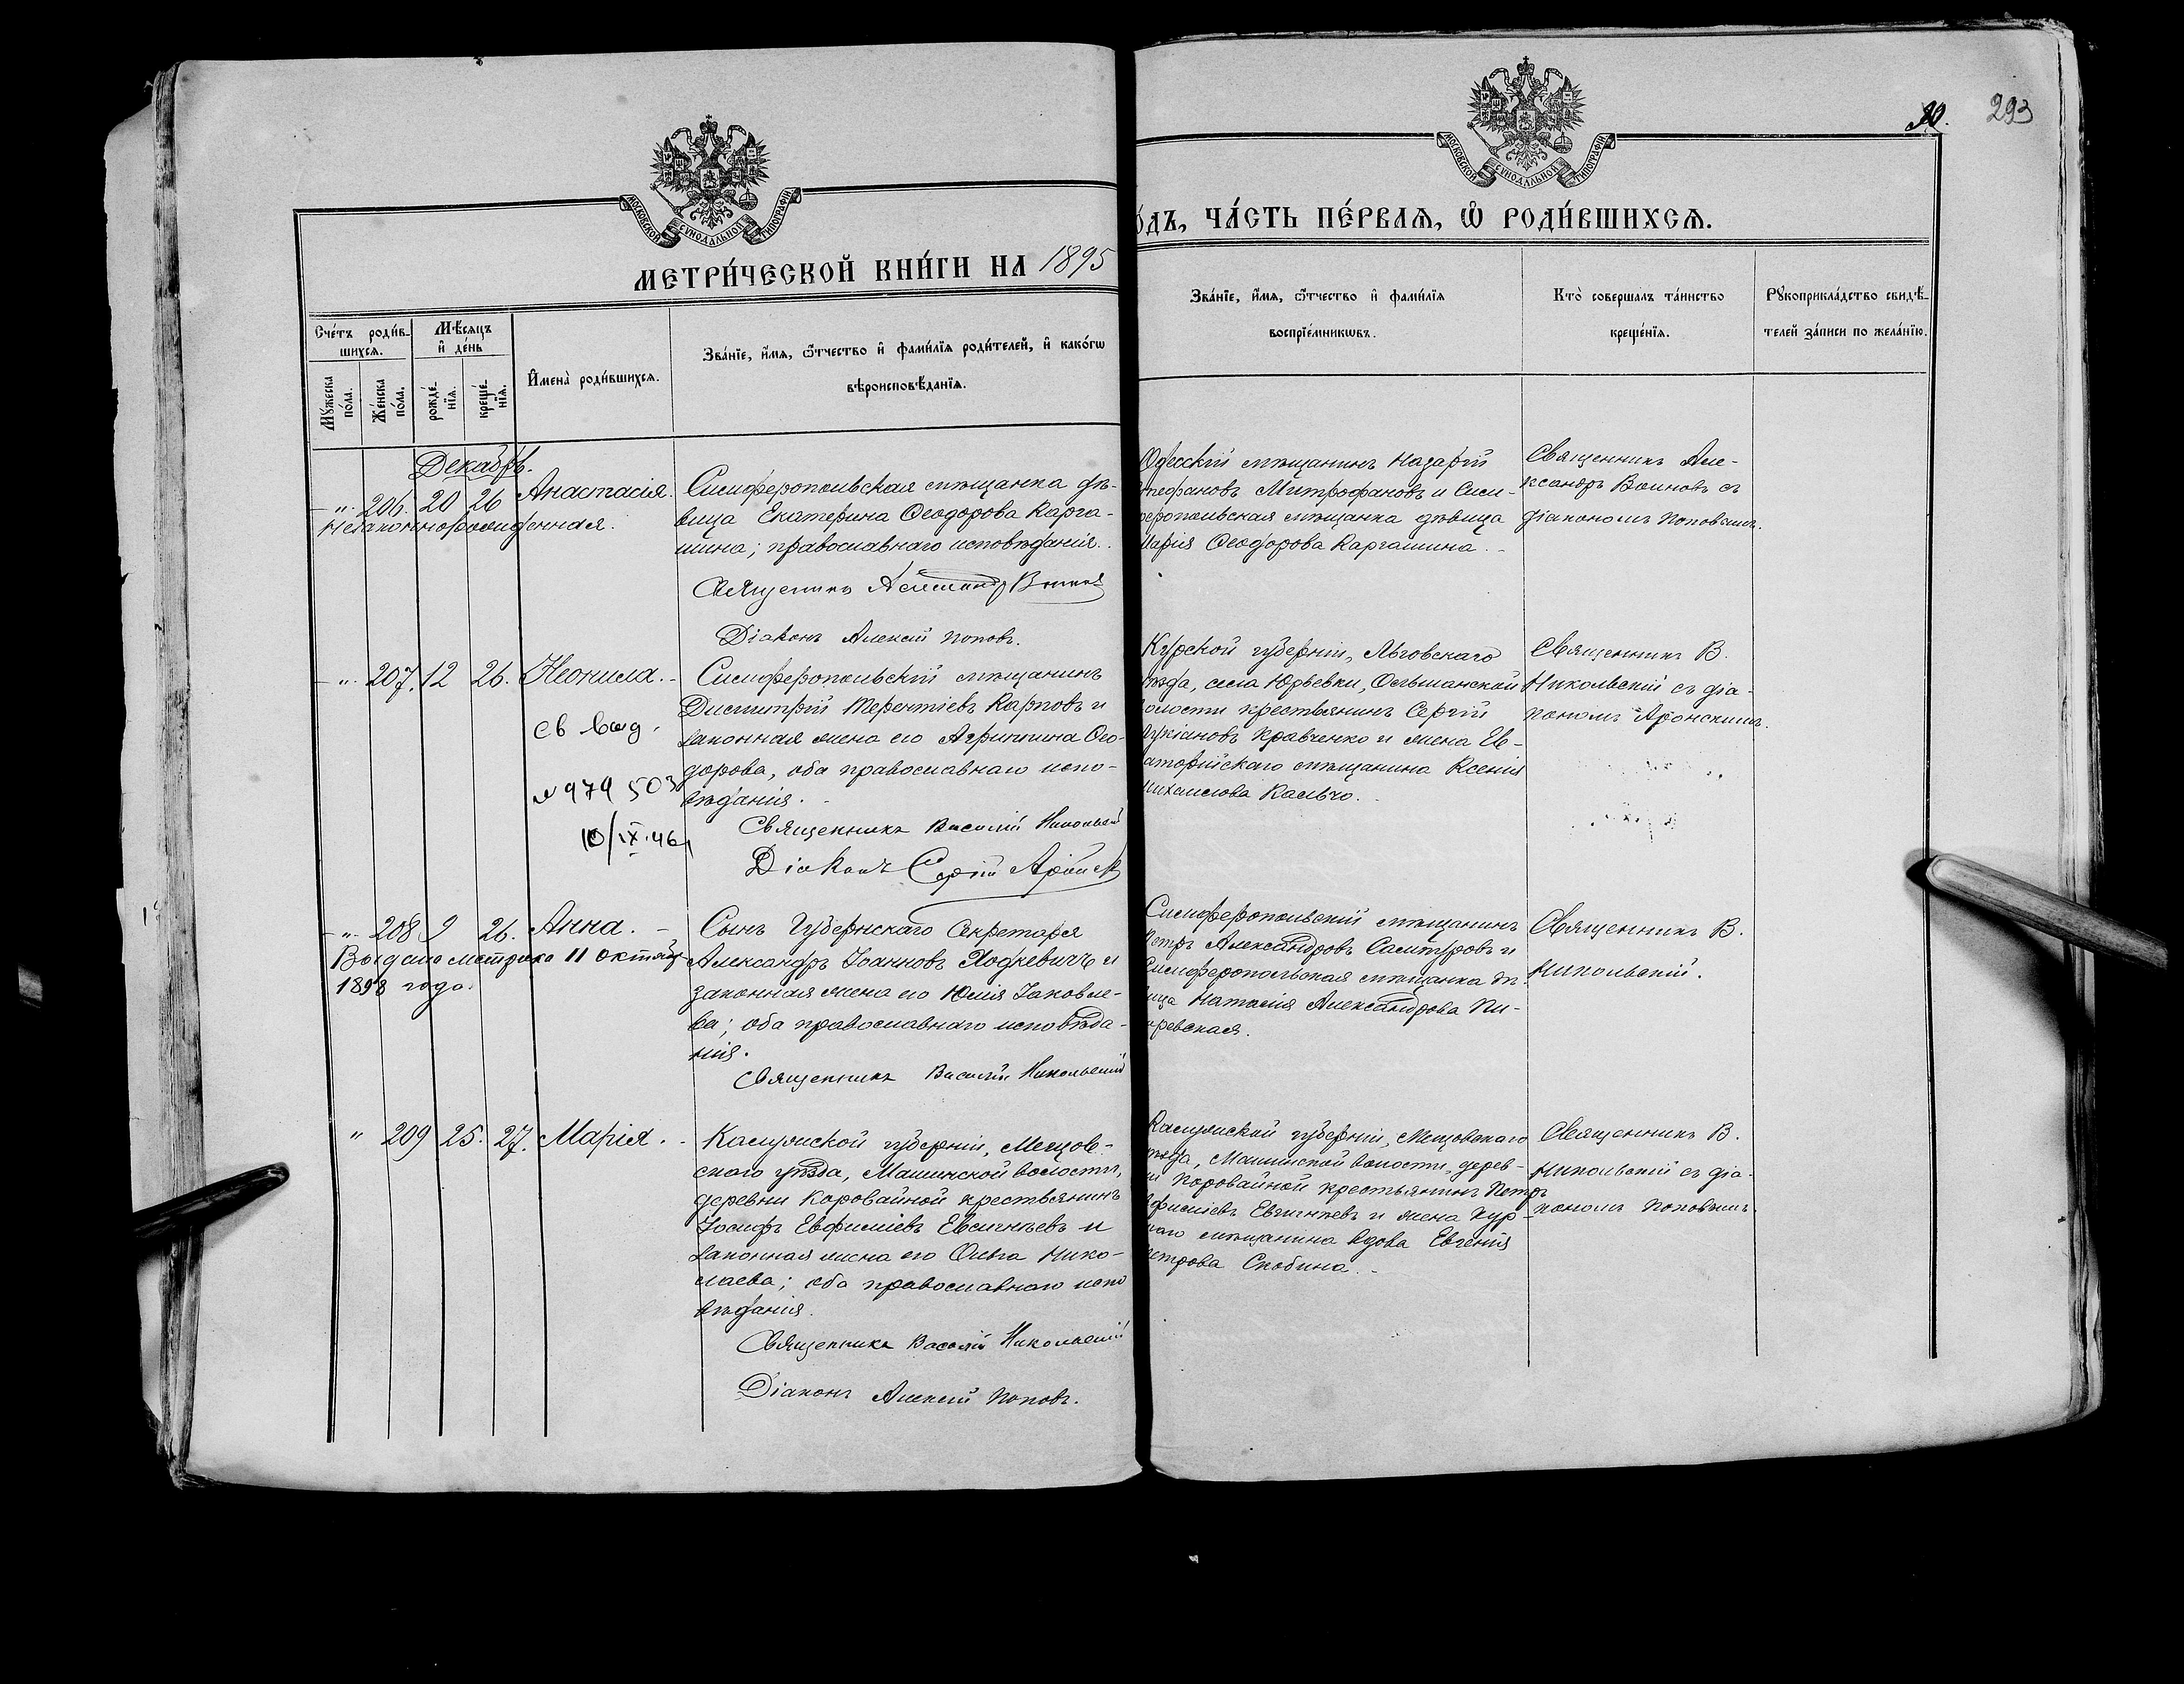 90. 293
МОСКОВСКОЙ СѴНОДАЛЬНОЙ ТИПОГРАФІИ
МОСКОВСКОЙ СѴНОДАЛЬНОЙ ТИПОГРАФІИ
МЕТРИ́ЧЕСКОЙ КНИ́ГИ НА 1895
О́ДЪ, ЧА́СТЬ ПЕ́РВАѦ, Ѿ РОДИ́ВШИХСѦ.
Сче́тъ роди́в-
шихсѧ.
Мѣ́сѧцъ
и҆ де́нь
Мꙋ́жеска
по́ла.
Же́нска
по́ла.
рожде́-
нїѧ.
креще́-
нїѧ.
И҆мена̀ роди́вшихсѧ.
Зва́нїе, и҆́мѧ, ѻ҆́тчество и҆ фами́лїѧ роди́телей, и҆ како́гѡ
вѣроисповѣ́данїѧ.
Зва́нїе, и҆́мѧ, ѻ҆́тчество и҆ фами́лїѧ
воспрїе́мникѡвъ.
Кто̀ соверша́лъ та́инство
креще́нїѧ.
Рꙋкоприкла́дство свидѣ́-
телей за́писи по жела́нїю.
Декабрь.
-"- 206. 20 26 Анастасія.
Незаконнорожденная.
Симферопольская мѣщанка дѣ-
вица Екатерина Ѳеодорова Карга-
шина; православнаго исповѣданія.
Священникъ Александр Воинов
Діаконъ Алексій Поповъ.
Одесскій мѣщанинъ Назарій
тефановъ Митрофановъ и Сим-
еропольская мѣщанка дѣвица
Марія Ѳеодорова Каргашина.
Священникъ Але-
ксандръ Воиновъ съ
діакономъ Поповымъ.
-"- 207. 12 26. Неонила.
св выд.
№ 979503
10/IX.46
Симферопольскій мѣщанинъ
Димитрій Терентіевъ Карповъ и
законная жена его Агриппина Ѳео-
дорова, оба православнаго испо-
вѣданія.
Священникъ Василій Никольскій
Діаконъ Сергій
Курской губерніи, Льговскаго
ѣзда, села Юрьевки, Ольшанской
олости крестьянинъ Сергій
укіановъ Кравченко и жена Ев-
аторійскаго мѣщанина Ксенія
ихаилова Кальчо.
Священникъ В.
Никольскій съ діа-
кономъ Аронскимъ.
-"- 208 9 26. Анна.
Выдана метрика 11 октяб
1898 года.
Сынъ Губернскаго Секретаря
Александръ Іоанновъ Ходкевичъ и
законная жена его Юлія Іаковле-
ва; оба православнаго исповѣда-
нія.
Священникъ Василій Никольскій
Симферопольскій мѣщанинъ
Петръ Александровъ и
Симферопольская мѣщанка дѣ-
ица Наталія Александрова Пи-
аревская.
Священникъ В.
Никольскій.
" 209 25. 27. Марія.
Калужской губерніи, Мещов-
скаго уѣзда, Машинской волости,
деревни Коровайной крестьянинъ
Іосифъ Евфиміевъ Евсигнѣевъ и
законная жена его Ольга Нико-
лаева; оба православнаго испо
вѣданія.
Священникъ Василій Никольскій
Діаконъ Алексій Поповъ.
Калужской губерніи, Мещовскаго
ѣзда, Машинской волости, дерев-
и Коровайной крестьянинъ Петръ
фиміевъ Евсигнѣевъ и жена Кур-
каго мѣщанина вдова Евгенія
етрова Скобина.
Священникъ В.
Никольскій съ діа-
кономъ Поповымъ.